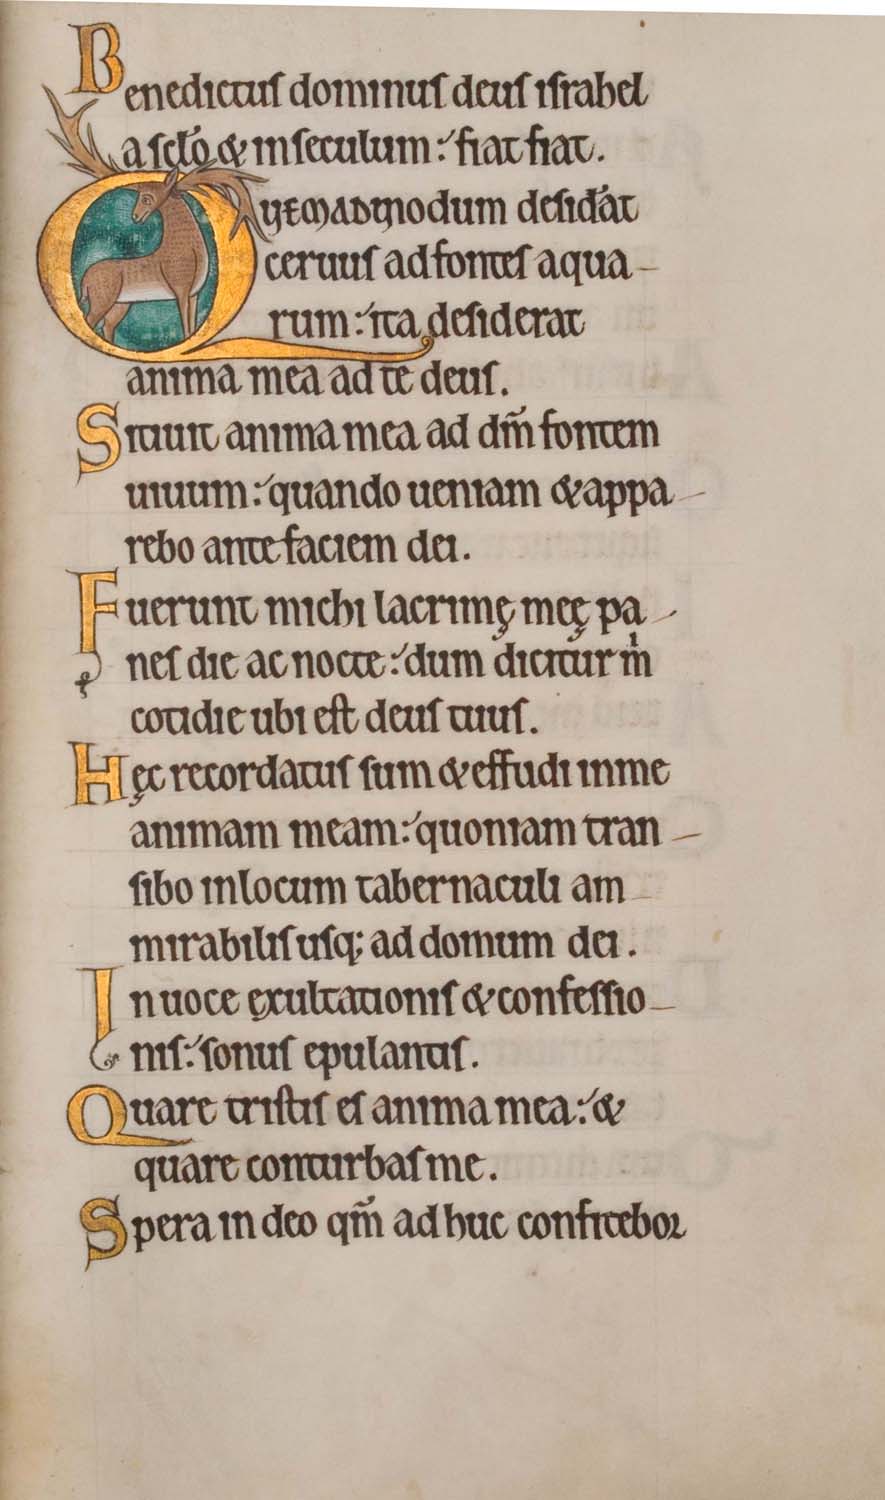 Benedictus dominus deus israhel
a sclo & in seculum: fiat fiat.
Quemadmodum desiderat
ceruus ad fontes aqua-
rum: ita desiderat
anima mea ad te deus.
Sitiuit anima mea ad dm̄ fontem
uiuum: quando ueniam & appa-
rebo ante faciem dei.
Fuerunt michi lacrimę meę pa-
nes die ac nocte: dum dicitur m̍
cotidie ubi est deus tuus.
Hęc recordatus sum & effudi in me
animam meam: quoniam tran-
sibo in locum tabernaculi am-
mirabilis usq; ad domum dei.
In uoce exultationis & confessio-
nis: sonus epulantis.
Quare tristis es anima mea: &
quare conturbas me.
Spera in deo qm̄ ad huc confitebor